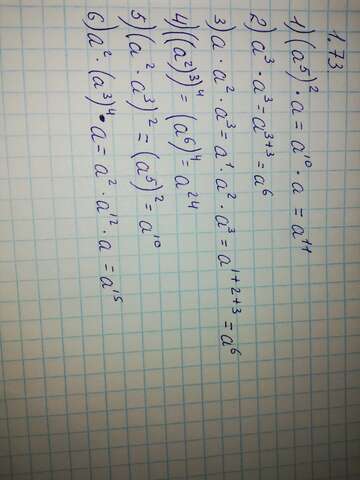 1.73
1) (a⁵)² · a = a¹⁰ · a = a¹¹
2) a³ · a³ = a³⁺³ = a⁶
3) a · a² · a³ = a¹ · a² · a³ = a¹⁺²⁺³ = a⁶
4) ((a²)³)⁴ = (a⁶)⁴ = a²⁴
5) (a² · a³)² = (a⁵)² = a¹⁰
6) a² · (a³)⁴ · a = a² · a¹² · a = a¹⁵